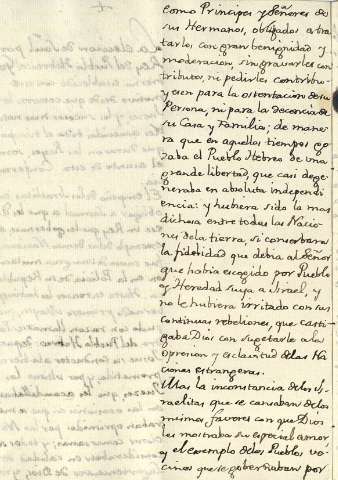 como Principes y Señores de
sus Hermanos, obligados a tra-
tarlos con gran benignidad y
moderacion, sin gravarles con
tributos, ni pedirles contribu-
cien para la ostentacion de su
Persona, ni para la decencia de
su Casa y Familia; de mane-
ra que en aquellos tiempos go-
zaba el Pueblo Hebreo de una
grande libertad, que casi dege-
neraba en absoluta independi-
encia: y hubiera sido la mas
dichosa entre todas las Nacio-
nes de la tierra, si conservara
la fidelidad que debia al Señor
que habia escogido por Pueblo
y Heredad suya a Israel, y
no le hubiera irritado con sus
continuas rebeliones, que casti-
gaba Dios con sugetarle a la
opresion y esclavitud de las Na-
ciones estrangeras.
Mas la inconstancia de los Is-
raelitas que se cansaban de los
mismos favores con que Dios
les mostraba su especial amor,
y el exemplo de los Pueblos ve-
cinos que se gobernaban por